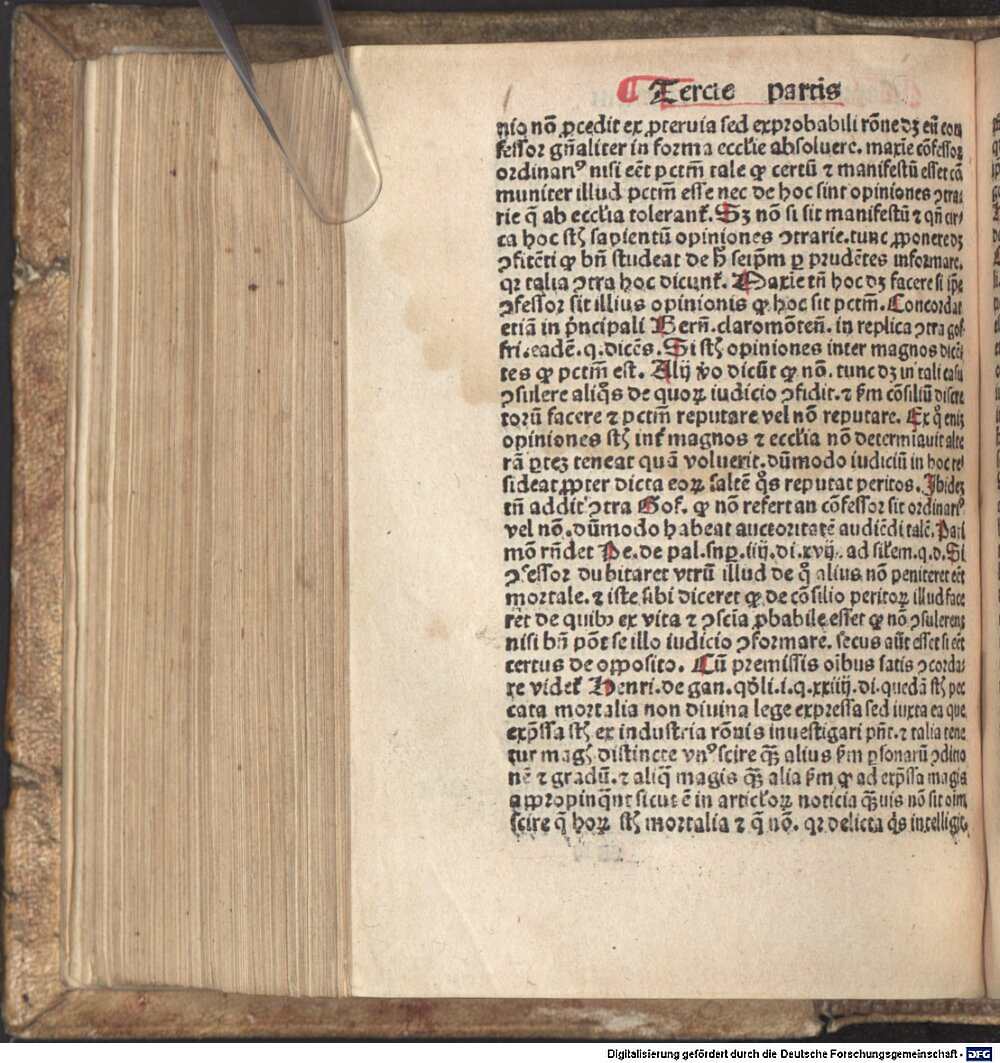 ¶ Tercie partis
nio nō ꝓcedit ex ꝓteruia sed ex probabili rōne dꝫ eū con
fessor gn̄aliter in forma eccl̄ie absoluere. maxīe cōfessor
ordinariꝰ nisi eēt pctm̄ tale ꝙ certū ⁊ manifestū esset cō
muniter illud pctm̄ esse nec de hoc sint opiniones ↄtra
rie q̄ ab eccl̄ia tolerant᷑. Sꝫ nō si sit manifestū ⁊ qn̄ cir
ca hoc st̄ sapientū opiniones ↄtrarie. tunc ꝓponere dꝫ
ↄfitēti ꝙ bn̄ studeat de h̄ seip̄m ꝑ prudētes informare.
qꝛ talia ↄtra hoc dicunt᷑. Maxie tn̄ hoc dꝫ facere si ip̄e
ↄfessor sit illius opinionis ꝙ hoc sit pctm̄. Concordat
etiā in p̄ncipali Bern̄. claromōteñ. in replica ↄtra gof
fri. eadē. q. dicēs. Si st̄ opiniones inter magnos dicē
tes ꝙ pctm̄ est. Alij v̄o dicūt ꝙ nō. tunc dꝫ in tali casu
ↄsulere aliq̄s de quoꝝ iudicio ↄfidit. ⁊ ẜm cōsiliū discre
torū facere ⁊ pctm̄ reputare vel nō reputare. Ex q̊ enī
opiniones st̄ int᷑ magnos ⁊ eccl̄ia nō determīauit alte
rā ꝑteꝫ teneat quā voluerit. dūmodo iudiciū in hoc re
sideat ꝓpter dicta eoꝝ saltē q̊s reputat peritos. Ibideꝫ
tn̄ addit ↄtra Gof. ꝙ nō refert an cōfessor sit ordinariꝰ
vel nō. dūmodo habeat auctoritatē audiēdi talē. Pari
mō rn̄det Pe. de pal. suꝑ .iiij. di. xvij. ad sil̄em. q. d. Si
ↄfessor dubitaret vtrū illud de q̊ alius nō peniteret eēt
mortale. ⁊ iste sibi diceret ꝙ de cōsilio peritoꝝ illud face
ret de quibꝰ ex vita ⁊ ↄsciā ꝓbabile esset ꝙ nō ↄsulerent
nisi bn̄ pōt se illo iudicio ↄformare. secus aūt esset si eēt
certus de opposito. Cū premissis oībus satis ↄcorda
re videt᷑ Henri. de gan. qdl̄i. i. q. xxiiij. di. quedā st̄ pec
cata mortalia non diuina lege expressa sed iuxta ea que
exp̄ssa st̄ ex industria rōnis inuestigari pn̄t. ⁊ talia tene
tur magꝭ distincte vnꝰ scire qꝫ̄ alius ẜm ꝑsonarū ↄditio
nē ⁊ gradū. ⁊ aliq̄ magis qꝫ̄ alia ẜm ꝙ ad exp̄ssa magis
appropinq̄nt sicut ē in articl̄oꝝ noticia qꝫ̄uis nō sit oīm
scire q̄ hoꝝ st̄ mortalia ⁊ q̄ nō. qꝛ delicta q̄s intelligit.
Digitalisierung gefördert durch die Deutsche Forschungsgemeinschaft - DFG